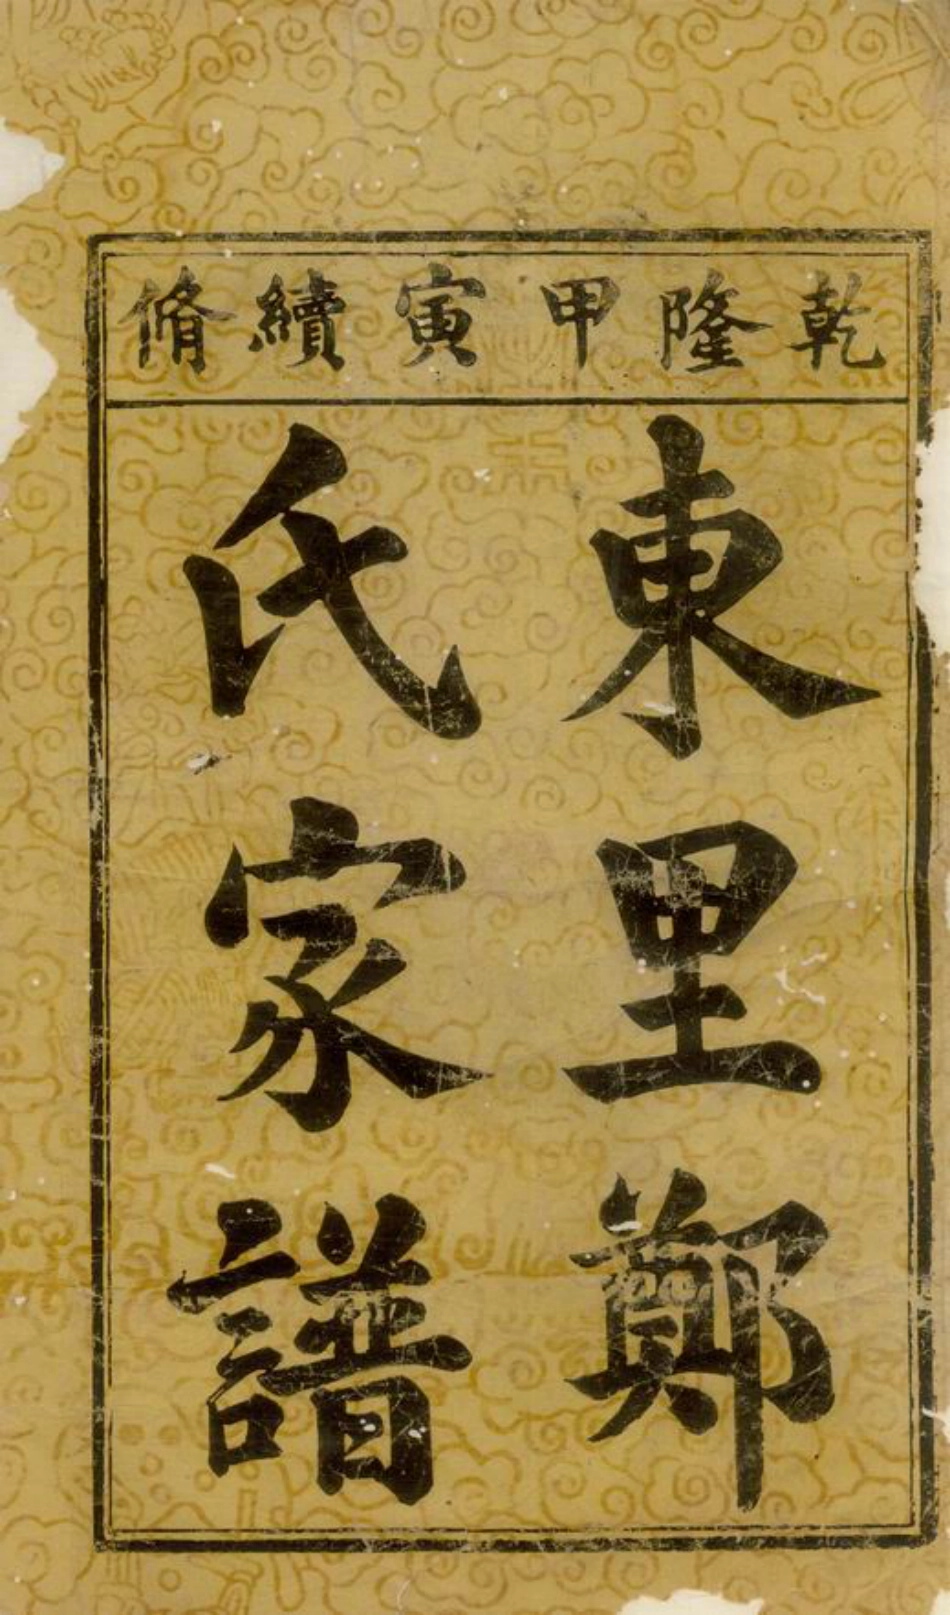 乾隆甲寅續脩
東里鄭
氏家譜